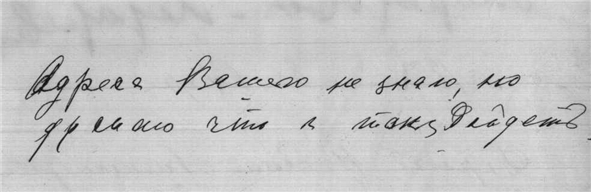 Адреса Вашего не знаю, но
думаю что и такъ дойдетъ.